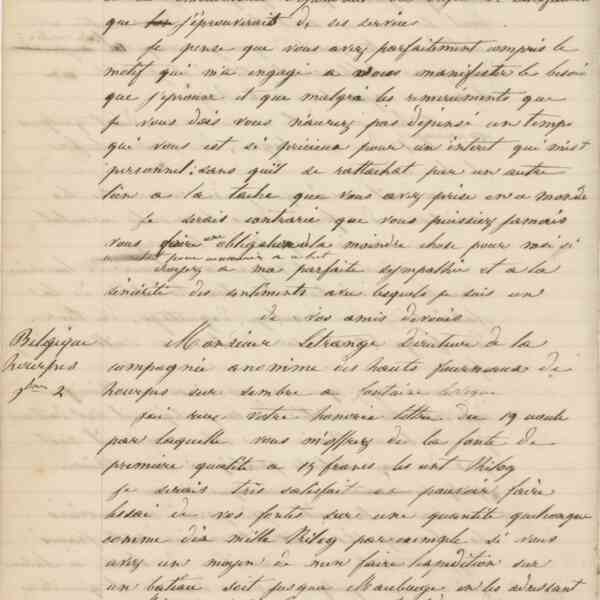 que j'éprouverait de ses services
Je pense que vous avez parfaitement compris le
motif qui m'a engagé a vous manifester le besoin
que j'éprouve et que malgré les remerciments que
je vous dois vous n'auriez pas dépensé un temps
qui vous est si précieux pour un interet qui m'est
personnel; sans quil se rattachat par un autre
lien a la tache que vous avez prise en a monde
Je serais contrarié que vous puissiez jamais
vous faire une obligation de la moindre chose pour moi si
croyez a ma parfaite sympathie et a la
sincérité des sentiments avec lesquels je suis un
de vos amis devoués
Belgique
hourpes
7bre 2
Monsieur Letrange directeur de la
compagnie anonime des hauts fourneaux de
hourpes sur sambre a fontaine
J'ai reçu votre honorée lettre du 19 août
par laquelle vous m'offrez de la fonte de
première qualité a 15 francs les cent kilog
Je serais très satisfait de pouvoir faire
essai de vos fontes sur une quantité quelconque
comme dix mille kilog par exemple si vous
avez un moyen de m'en faire l'expédition sur
un bateau soit jusqua Maubeuge en les adressant